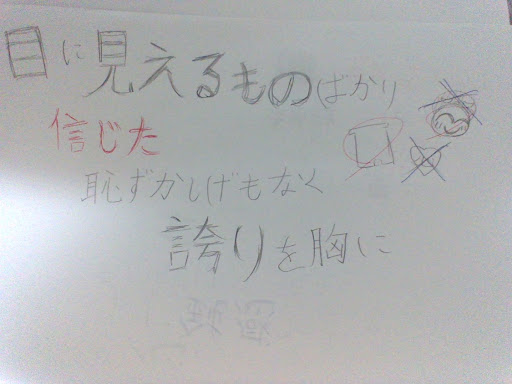 目に見えるものばかり
信じた
恥ずかしげもなく
誇りを胸に